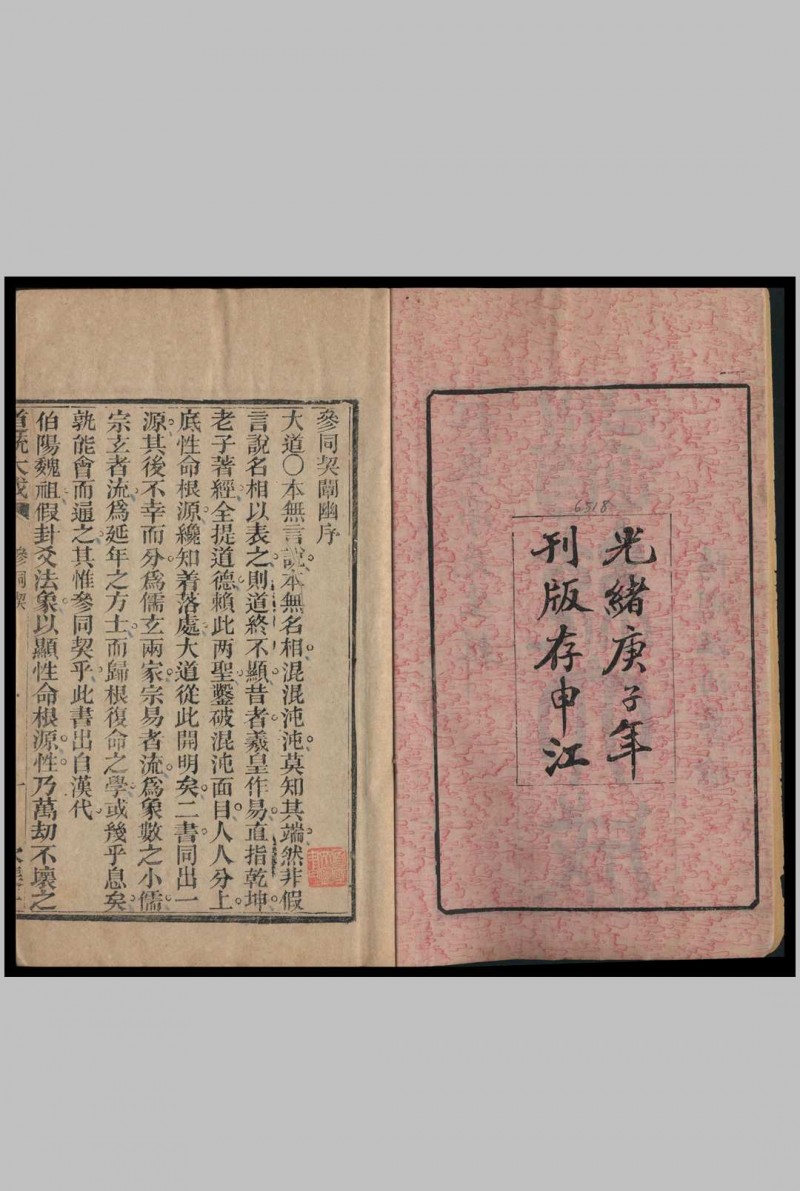 光緒庚子年
刊版存申江
6518
參同契闡幽序
大道〇本無言說本無名相混混沌沌莫知其端然非假
言說名相以表之則道終不顯昔者羲皇作易直指乾坤
老子著經全提道德賴此两聖鑿破混沌面目人人分上
底性命根源纔知着落處大道從此開明矣二書同出一
源其後不幸而分爲儒玄兩家宗易者流爲象數之小儒
宗玄者流爲延年之方士而歸根復命之學或幾乎息矣
孰能會而通之其惟參同契乎此書出自漢代
伯陽魏祖假卦爻法象以顯性命根源性乃萬劫不壞之
道統大成 參同契 一